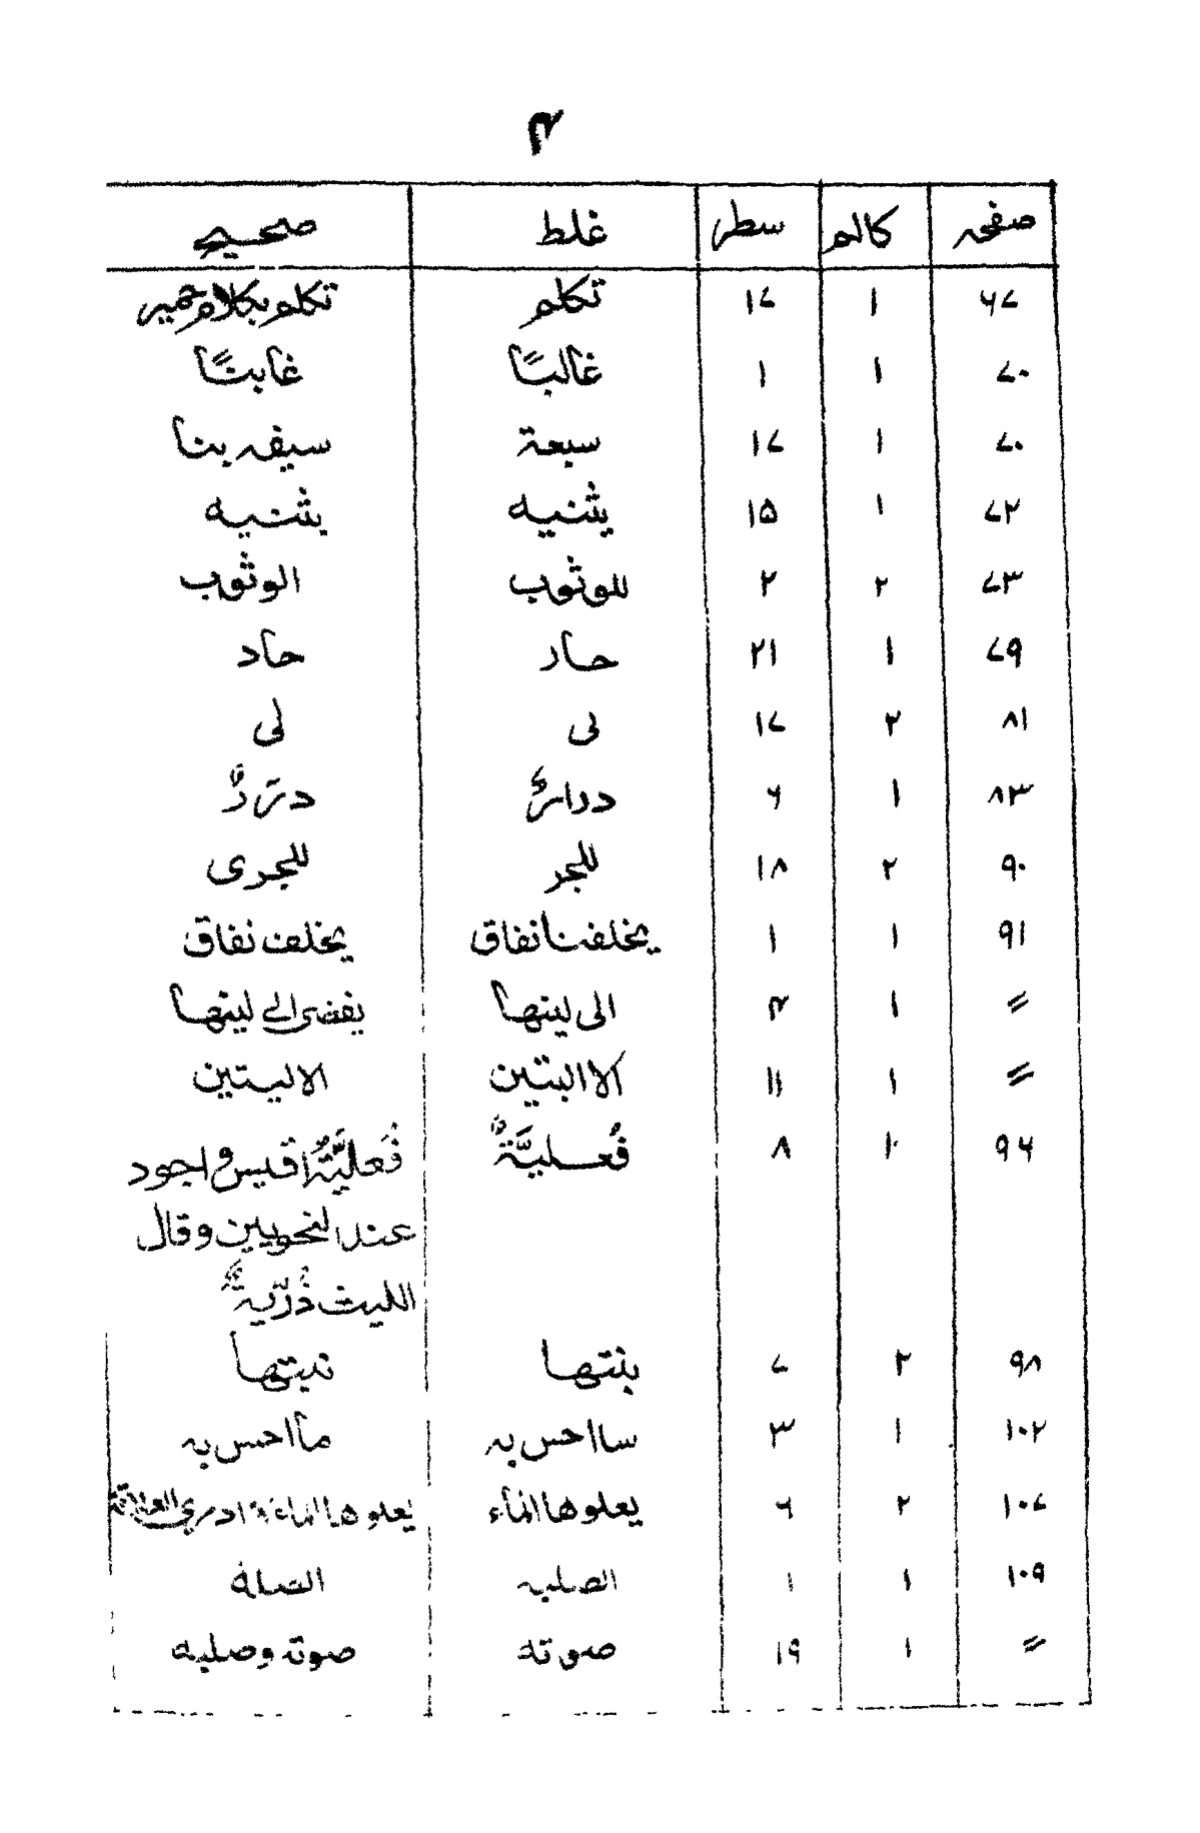 ۴
صفحہ کالم سطر غلط صحیح
۶۷ ۱ ۱۷ تکلم تکلم بکلام حمیر
۷۰ ۱ ۱ غالبًا غابتًا
۷۰ ۱ ۱۷ سبعة سیفہ بنا
۷۲ ۱ ۱۵ یثنیه یثنیه
۷۳ ۲ ۲ للوثوب الوثوب
۷۹ ۱ ۲۱ حار حاد
۸۱ ۲ ۱۷ لی
۸۳ ۱ ۶
۹۰ ۲ ۱۸ للجر للجری
۹۱ ۱ ۱ یخلفنا نفاق یخلف نفاق
〃 ۱ ۴ الی لینها یفضی الے لینها
〃 ۱ ۱۱ الا البتین الالیتین
۹۴ ۱ ۸ فُعلیَّةٌ فُعلیَّةٌ اقیس و اجود
عند النحویین وقال
اللیث ذُرّیةٌ
۹۸ ۲ ۷ بنتها نبتها
۱۰۲ ۱ ۳ سا احس به ما احس به
۱۰۷ ۲ ۶ یعلوها الماء یعلوها الماء
۱۰۹ ۱ ۱ الصلبه الصلة
〃 ۱ ۱۹ صوته صوته وصلبه